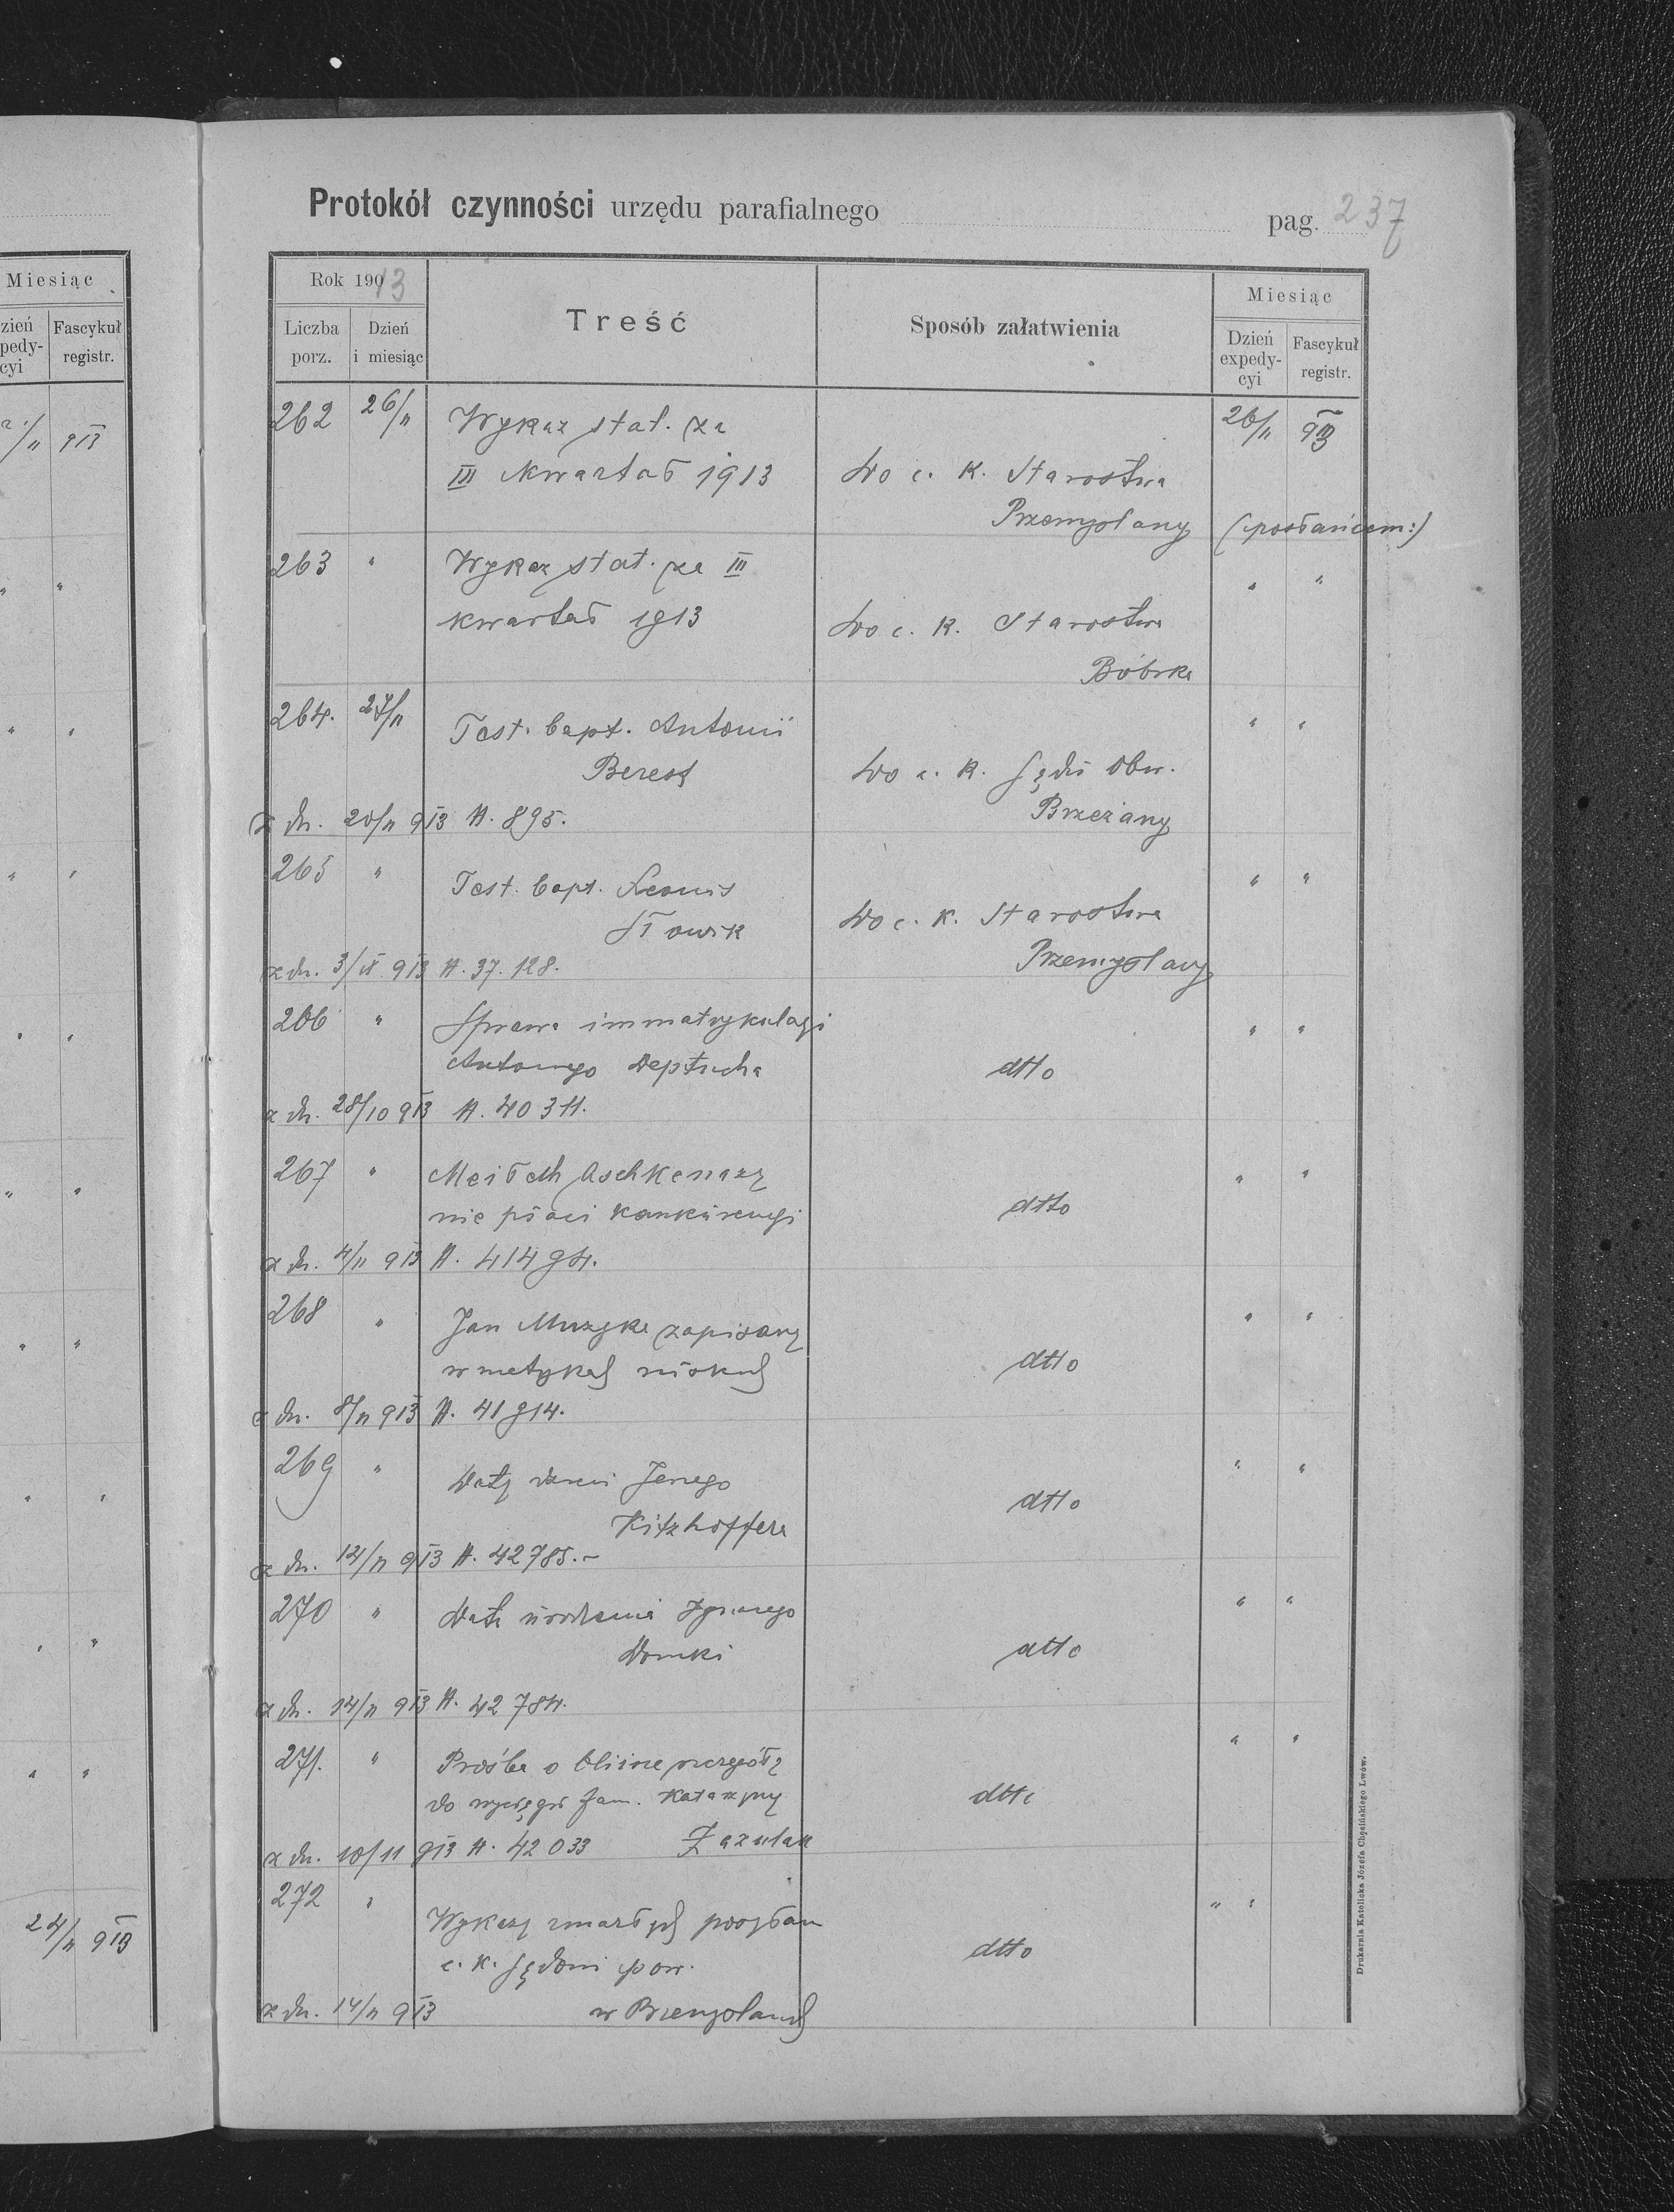 Miesiąc
Dzień expedycyi
Fascykuł registr.
913
24/11 913
Protokół czynności urzędu parafialnego
pag. 237
Rok 1913
Liczba porz.
Dzień i miesiąc
Treść
Sposób załatwienia
Miesiąc
Dzień expedycyi
Fascykuł registr.
262 26/11 Wykaz stat. za 26/11 913
III kwartał 1913 Do c. k. Starostwa
Przemyślany (posłańcem:)
263 " Wykaz stat. za III " "
kwartał 1913 Do c. k. Starostwa
Bóbrka
264. 27/11 Test. bapt. Antonii " "
Berest Do c. k. Sądu obw.
Brzeżany
z dn. 20/11 913 N. 895.
265 " Test. bapt. Leonis " "
Słowik Do c. k. Starostwa
Przemyślany
z dn. 3/IX 913 N. 37.128.
266 " Sprawa immatrykulacyi " "
Antoniego Deptucha dtto
z dn. 28/10 913 N. 40311.
267 " Meilech Aschkenazy " "
nie płaci konkurencyi dtto
z dn. 4/11 913 N. 41494.
268 " Jan Muzyka zapisany " "
w metrykach dtto
z dn. 8/11 913 N. 41914.
269 " Daty Jerzego " "
Kitzhoffera dtto
z dn. 14/11 913 N. 42785.-
270 " Data urodzenia Ignacego " "
Domki dtto
z dn. 14/11 913 N. 42784.
271. " Prośba o bliższe szczegóły " "
do wyciągu fam. Katarzyny dtto
z dn. 10/11 913 N. 42033 Zazulak
272 " Wykazy zmarłych posyłam " "
c. k. Sądowi pow. dtto
z dn. 14/11 913 w Przemyślanach
Drukarnia Katolicka Józefa Chęcińskiego Lwów.